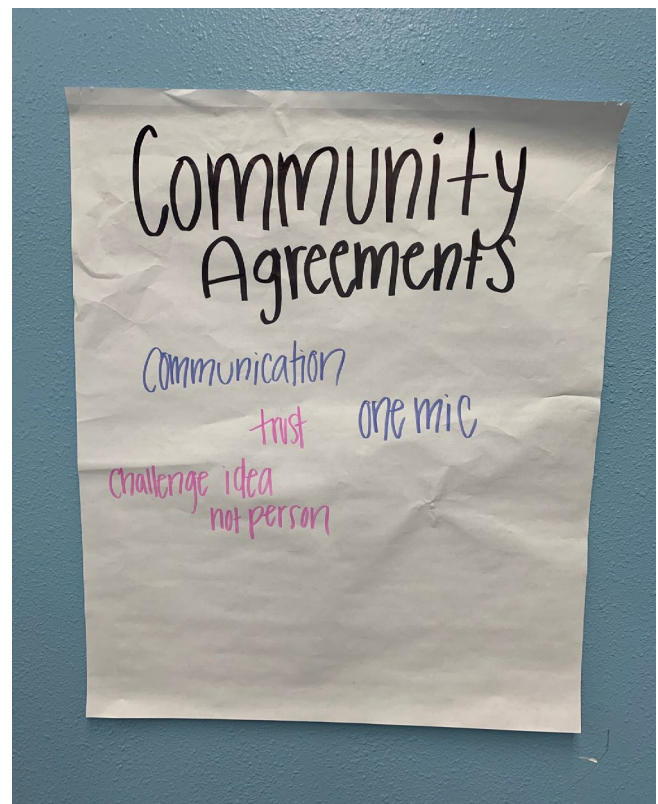 Community
Agreements
Communication
trust
one mic
Challenge idea
not person